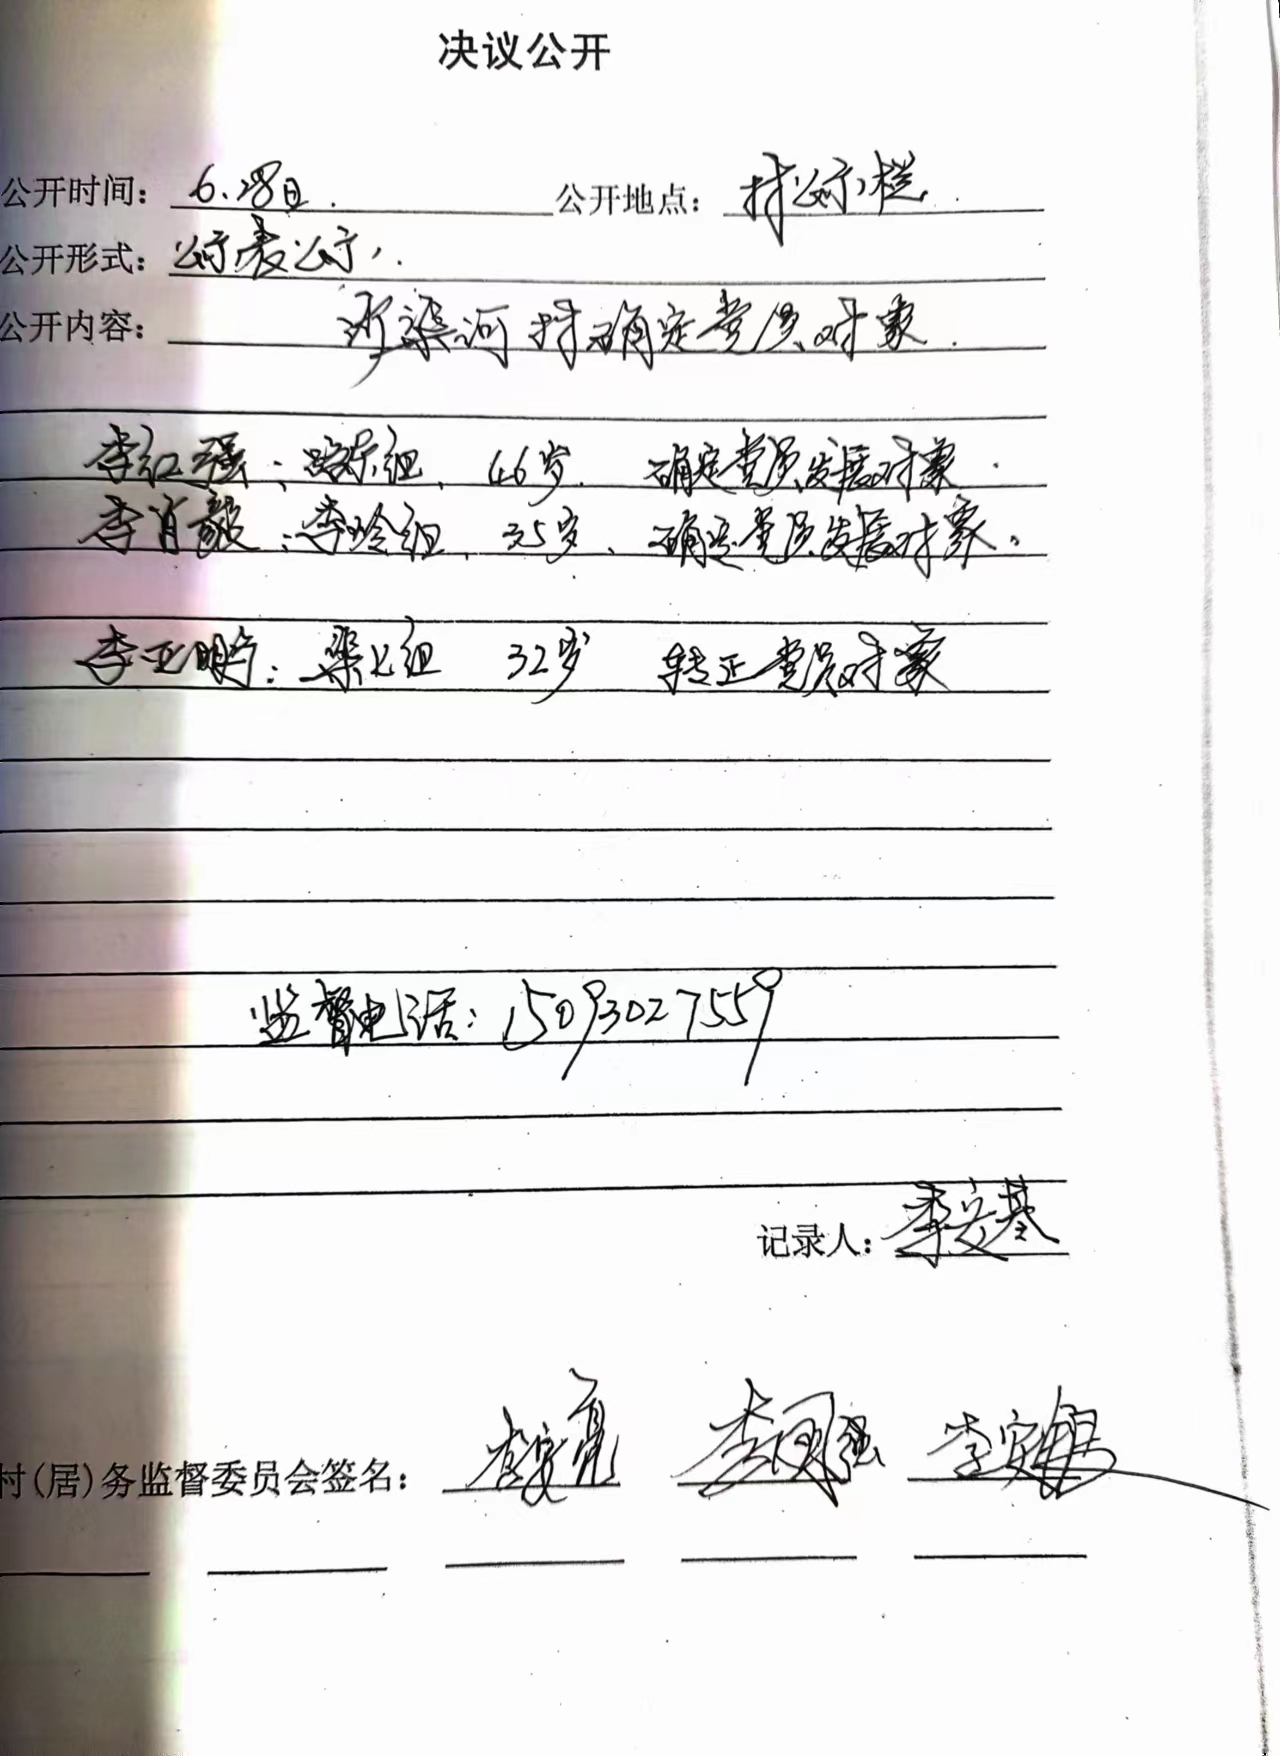 决议公开
公开时间：6.28日. 公开地点：村公示栏.
公开形式：公示表公示.
公开内容：沙渠河村确定党员对象.
李红强：路东组. 46岁. 确定党员发展对象.
李肖毅：李岭组. 35岁. 确定党员发展对象。
李亚明：渠北组 32岁 转正党员对象
监督电话：15093027559
记录人：李安基
村(居)务监督委员会签名： 李安亮 李国强 李安